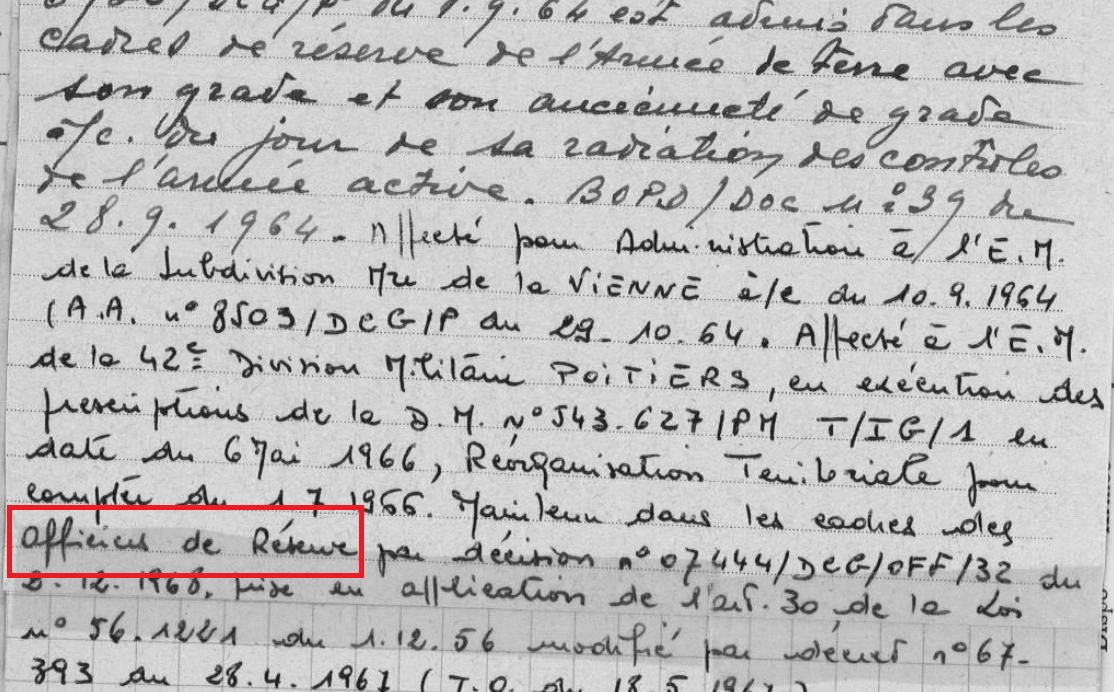 du 1.9.64 est admis dans les
cadres de réserve de l'Armée de terre avec
son grade et son ancienneté de grade
à/c. du jour de sa radiation des contrôles
de l'armée active. BOPD/Doc n°39 du
28.9.1964. Affecté pour Administration à l'E.M.
de la Subdivision Mre de la VIENNE à/c du 10.9.1964
(A.A. n° 8503/DCG/P du 29.10.64. Affecté à l'E.M.
de la 42e Division Militaire POITIERS, en exécution des
prescriptions de la D.M. N° 543.627/PM T/IG/1 en
date du 6 Mai 1966, Réorganisation Territoriale pour
compter du 1 7 1966. Maintenu dans les cadres des
Officiers de Réserve par décision n° 07444/DCG/OFF/32 du
2.12.1968, prise en application de l'art. 30 de la Loi
n° 56.1221 du 1.12.56 modifié par décret n° 67-
393 du 28.4.1967 (J.O. du 18.5.1967)